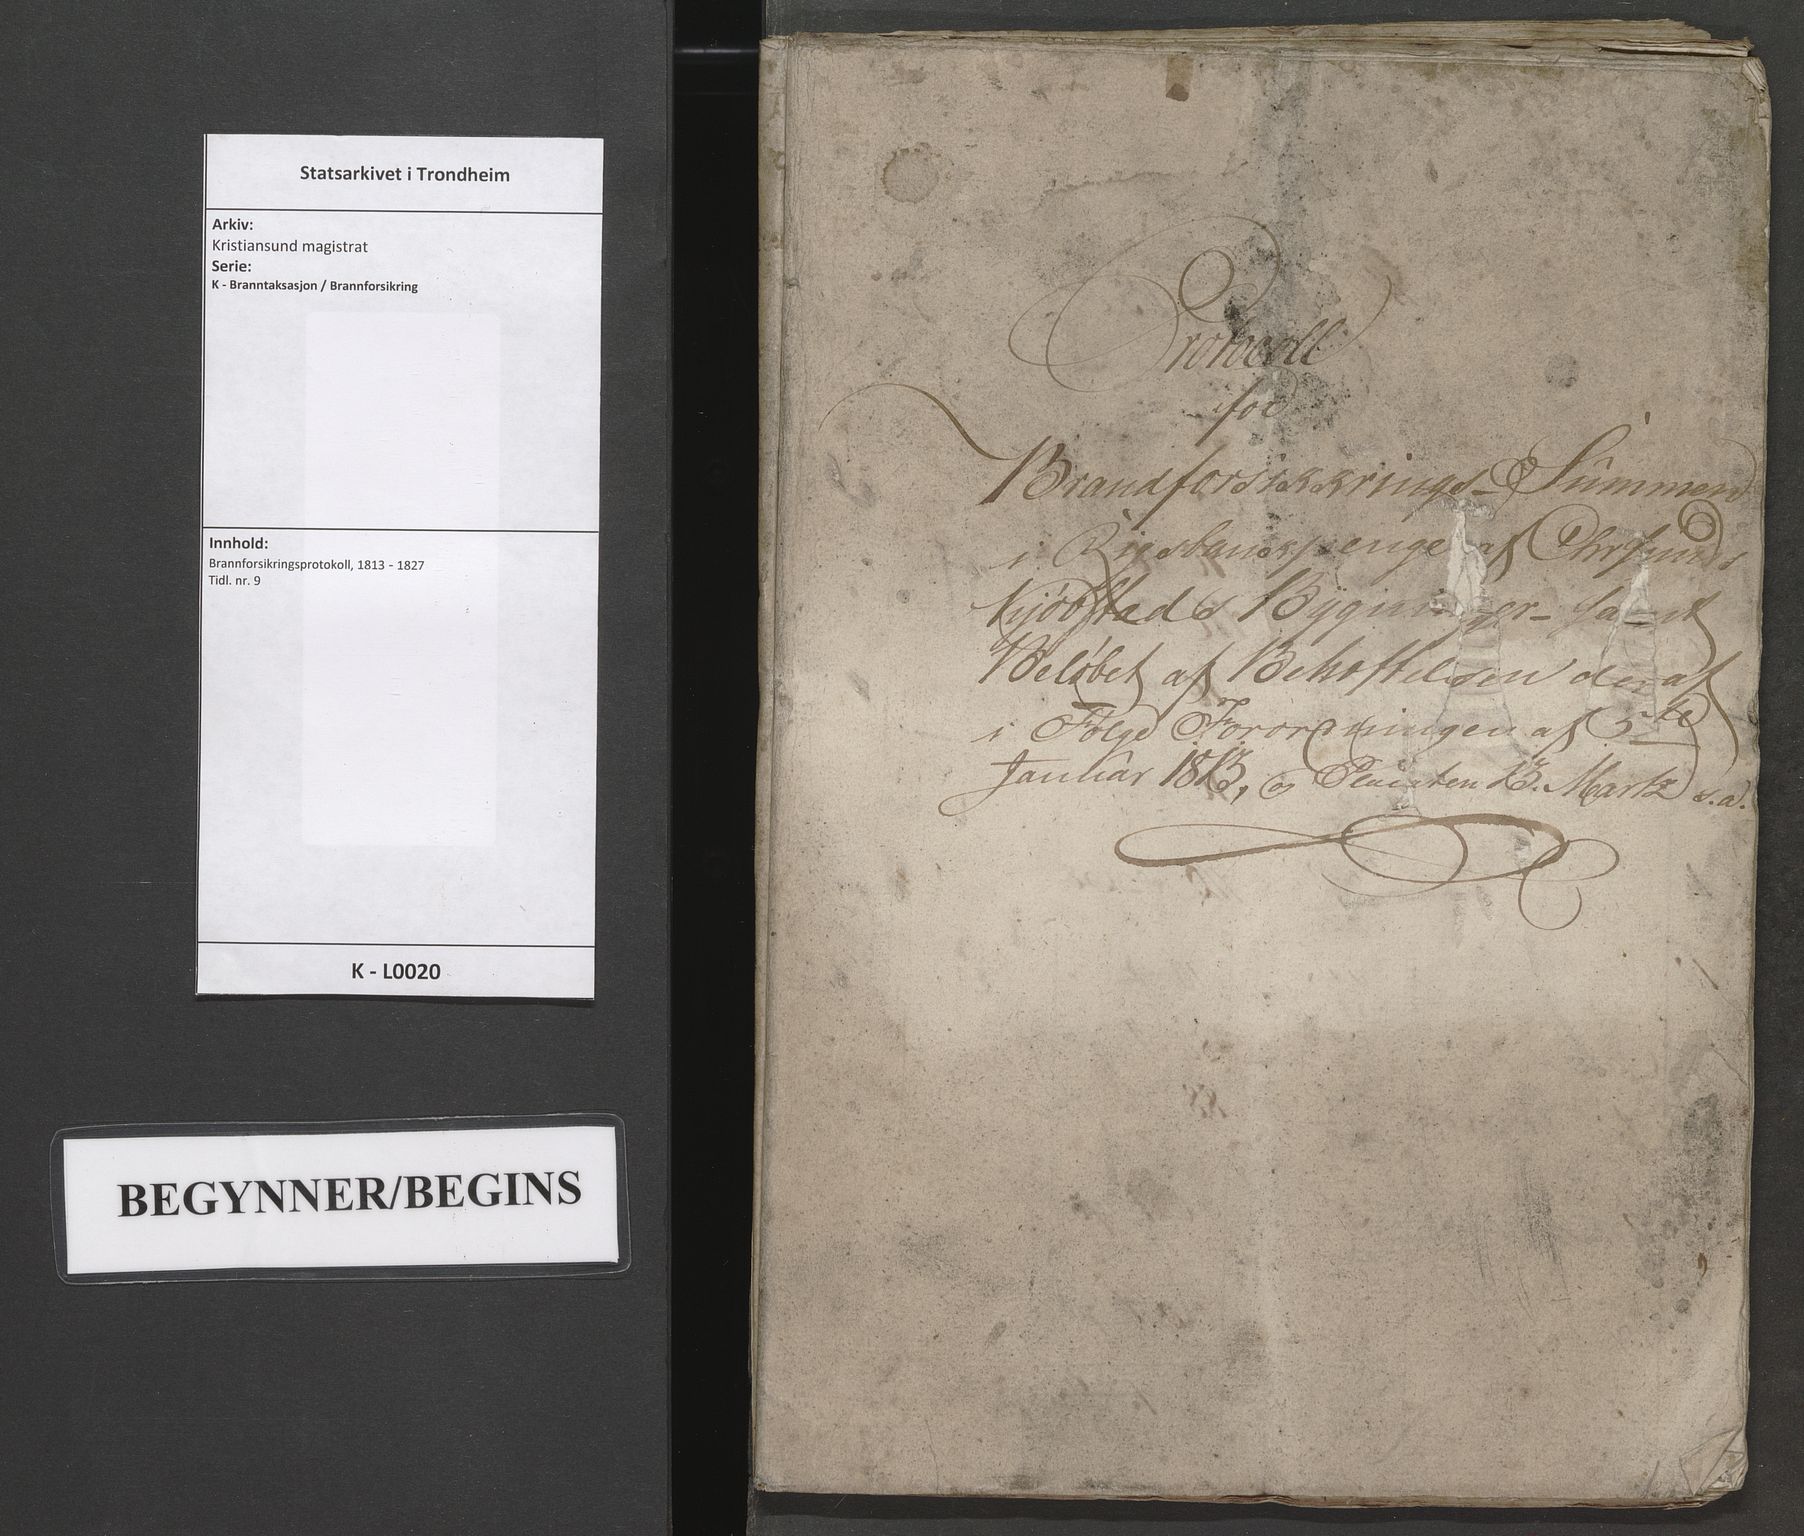 Statsarkivet i Trondheim
Arkiv:
Kristiansund magistrat
Serie:
K - Branntaksasjon / Brannforsikring
Innhold:
Brannforsikringsprotokoll, 1813 - 1827
Tidl. nr. 9
K - L0020
BEGYNNER/BEGINS
Protocoll
for
Brandforsikkrings-Summen
i Rigsbankspenge af Chrsunds
Kjöbstæds Bygninger- samt
Belöbet af Behæftelsen deraf
i Fölge Forordningen af 5te
Januar 1813, og Placaten 13. Martz s.a.